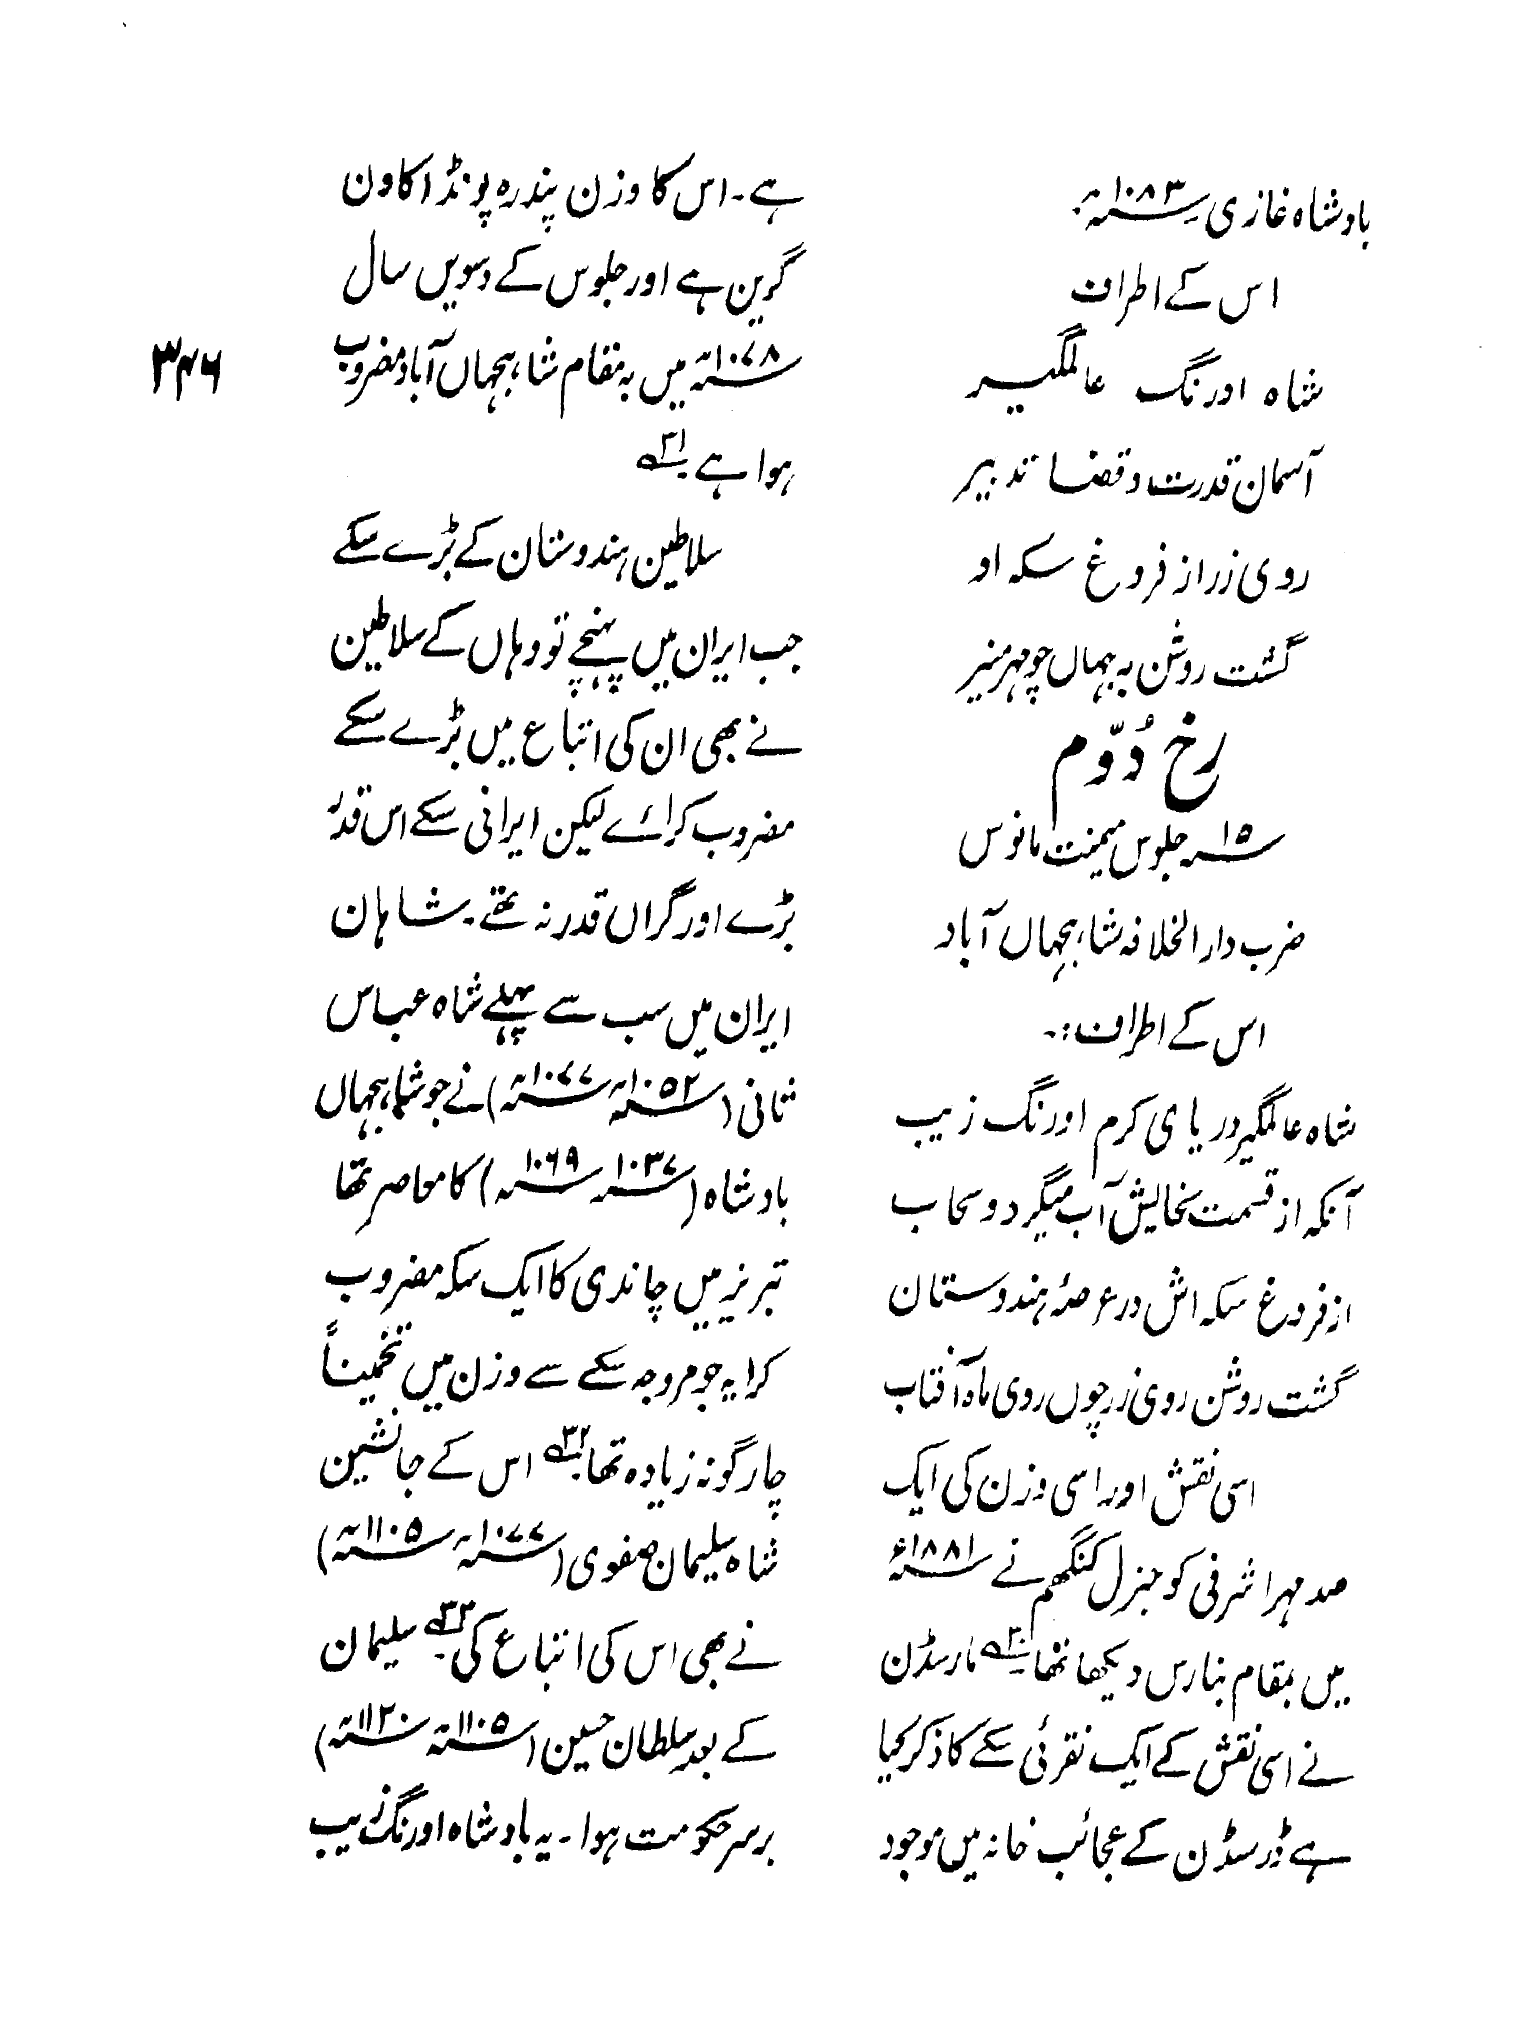 بادشاہ غازی ۱۰۸۳ھ
اس کے اطراف
شاہ اورنگ عالمگیر
آسمان قدرت و قضا تدبیر
روی زر از فروغ سکہ او
گشت روشن بہ جہاں چو مہر منیر
رخ دُوّم
۱۵ سنہ جلوس میمنت مانوس
ضرب دار الخلافہ شاہجہاں آباد
اس کے اطراف :۔
شاہ عالمگیر دریا ی کرم اورنگ زیب
آنکہ از قسمت سخایش آب میگردد سحاب
از فروغ سکہ اش در عرصۂ ہندوستان
گشت روشن روی زر چوں روی ماہ آفتاب
اسی نقش اور اسی وزن کی ایک
صد مہر اشرفی کو جنرل کننگھم نے ۱۸۸۱ء
میں بمقام بنارس دیکھا تھا۳۰ مارسڈن
نے اسی نقش کے ایک نقرئی سکے کا ذکر کیا
ہے ڈرسڈن کے عجائب خانہ میں موجود
ہے۔ اس کا وزن پندرہ پونڈ اکاون
گرین ہے اور جلوس کے دسویں سال
۱۰۷۸ھ میں بہ مقام شاہجہاں آباد مضروب
ہوا ہے۳۱
سلاطین ہندوستان کے بڑے سکے
جب ایران میں پہنچے تو وہاں کے سلاطین
نے بھی ان کی اتباع میں بڑے سکے
مضروب کرائے لیکن ایرانی سکے اس قدر
بڑے اور گراں قدر نہ تھے۔ شاہان
ایران میں سب سے پہلے شاہ عباس
ثانی (۱۰۵۲ھ ۱۰۷۷ھ) نے جو شاہجہاں
بادشاہ (۱۰۳۷ ۱۰۶۹) کا معاصر تھا
تبریز میں چاندی کا ایک سکہ مضروب
کرایہ جو مروجہ سکے سے وزن میں تخمیناً
چار گونہ زیادہ تھا۳۲ اس کے جانشین
شاہ سلیمان صفوی (۱۰۷۷ھ ۱۱۰۵ھ)
نے بھی اس کی اتباع کی۔۳۳ سلیمان
کے بعد سلطان حسین (۱۱۰۵ھ ۱۱۲۰ھ)
برسر حکومت ہوا۔ یہ بادشاہ اورنگ زیب
۳۴۶